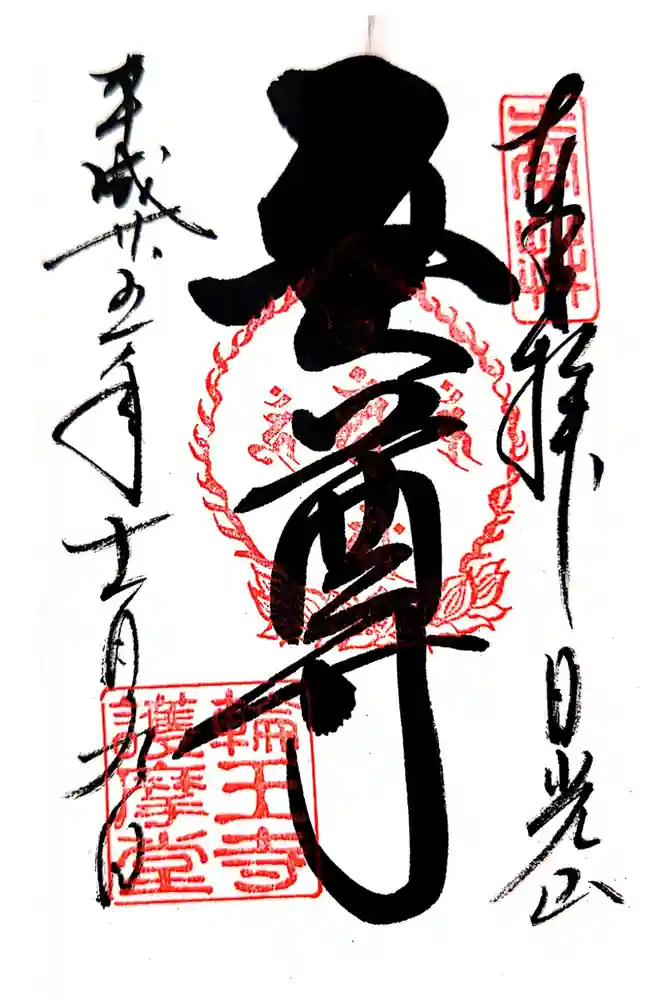 奉拝 日光山
五大尊
平成廿五年十一月九日
輪王寺
護摩堂